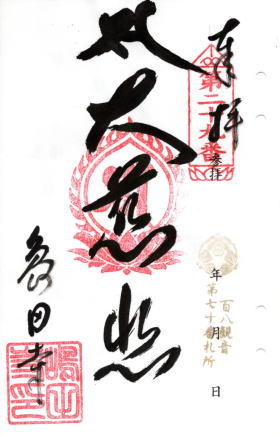 奉拝
第二十九番
参拝
年 月 日
百八観音
第七十 番札所
大慈悲
田寺